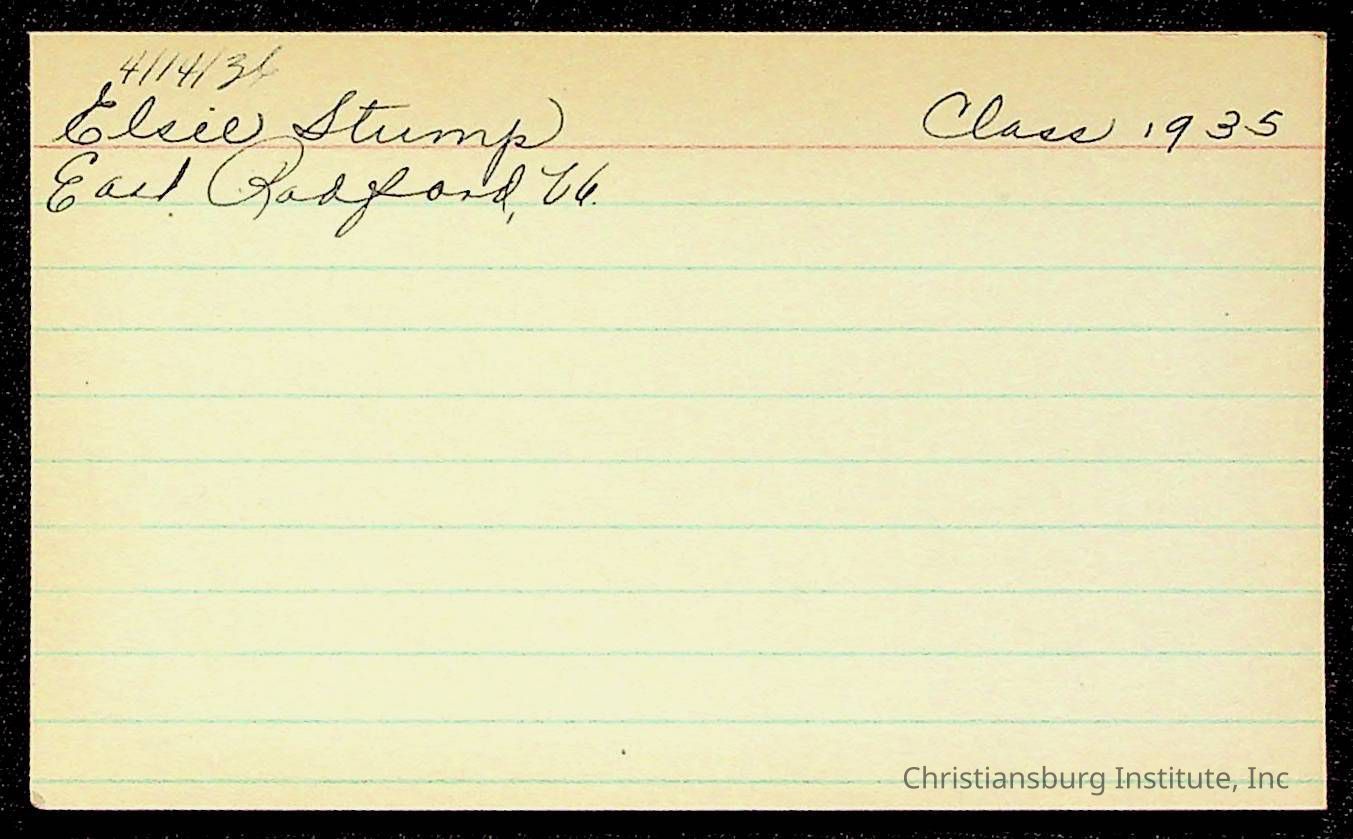 4/14/36
Elsie Stump Class 1935
East Radford, Va.
Christiansburg Institute, Inc